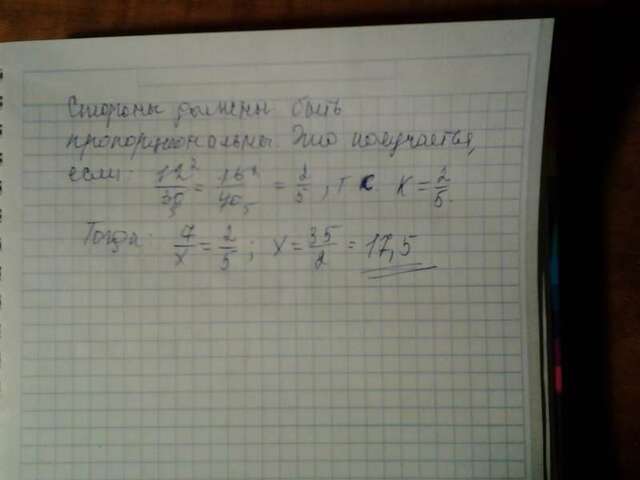 Стороны должны быть
пропорциональны. Это получается,
если: 12²/30₅ = 16²/40₅ = 2/5, т с K = 2/5.
Тогда: 7/x = 2/5; x = 35/2 = 17,5